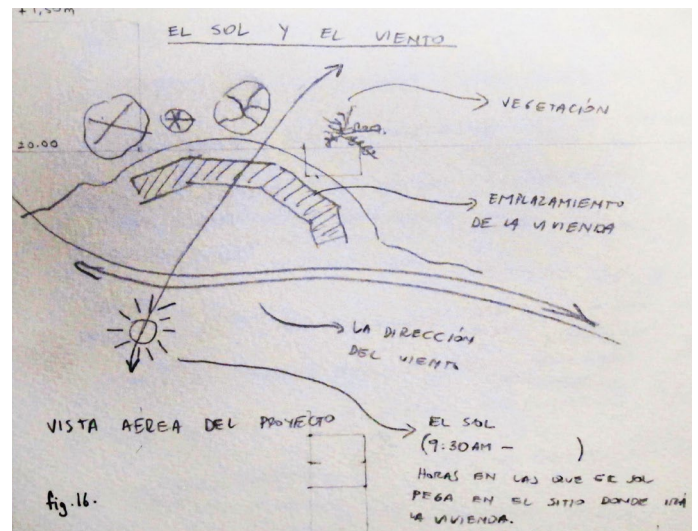 +1,50m
EL SOL Y EL VIENTO
VEGETACIÓN
20.00
EMPLAZAMIENTO
DE LA VIVIENDA
LA DIRECCIÓN
DEL VIENTO
VISTA AÉREA DEL PROYECTO
EL SOL
(9:30AM - )
HORAS EN LAS QUE EL SOL
PEGA EN EL SITIO DONDE IRÁ
LA VIVIENDA.
fig.16.